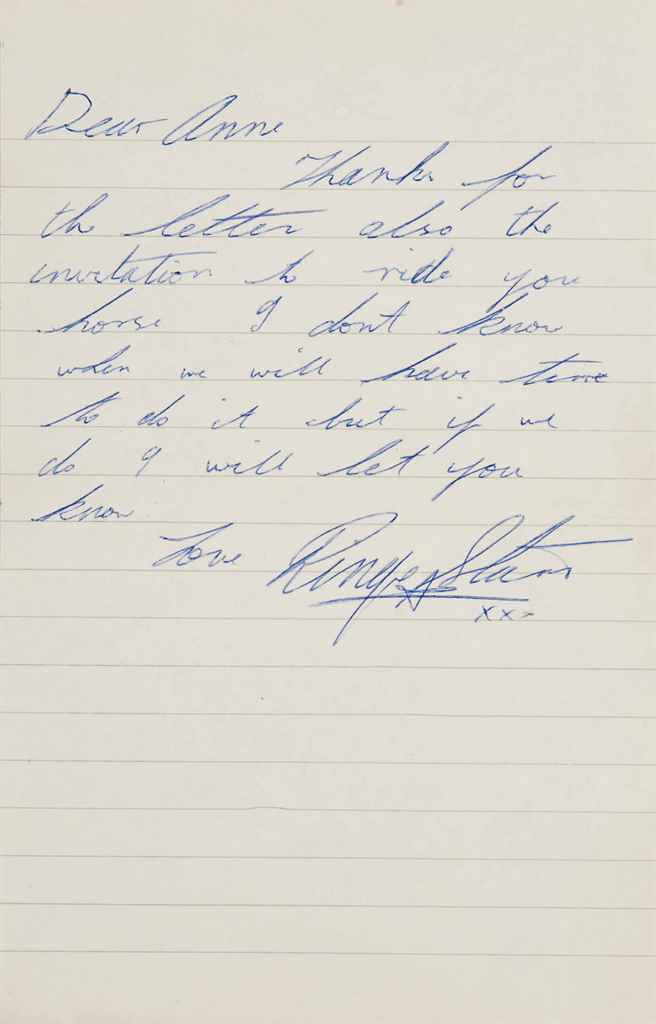 Dear Anne
Thanks for
the letter also the
invitation to ride you
horse I dont know
when we will have time
to do it but if we
do I will let you
know
Love Ringo Starr
xxx